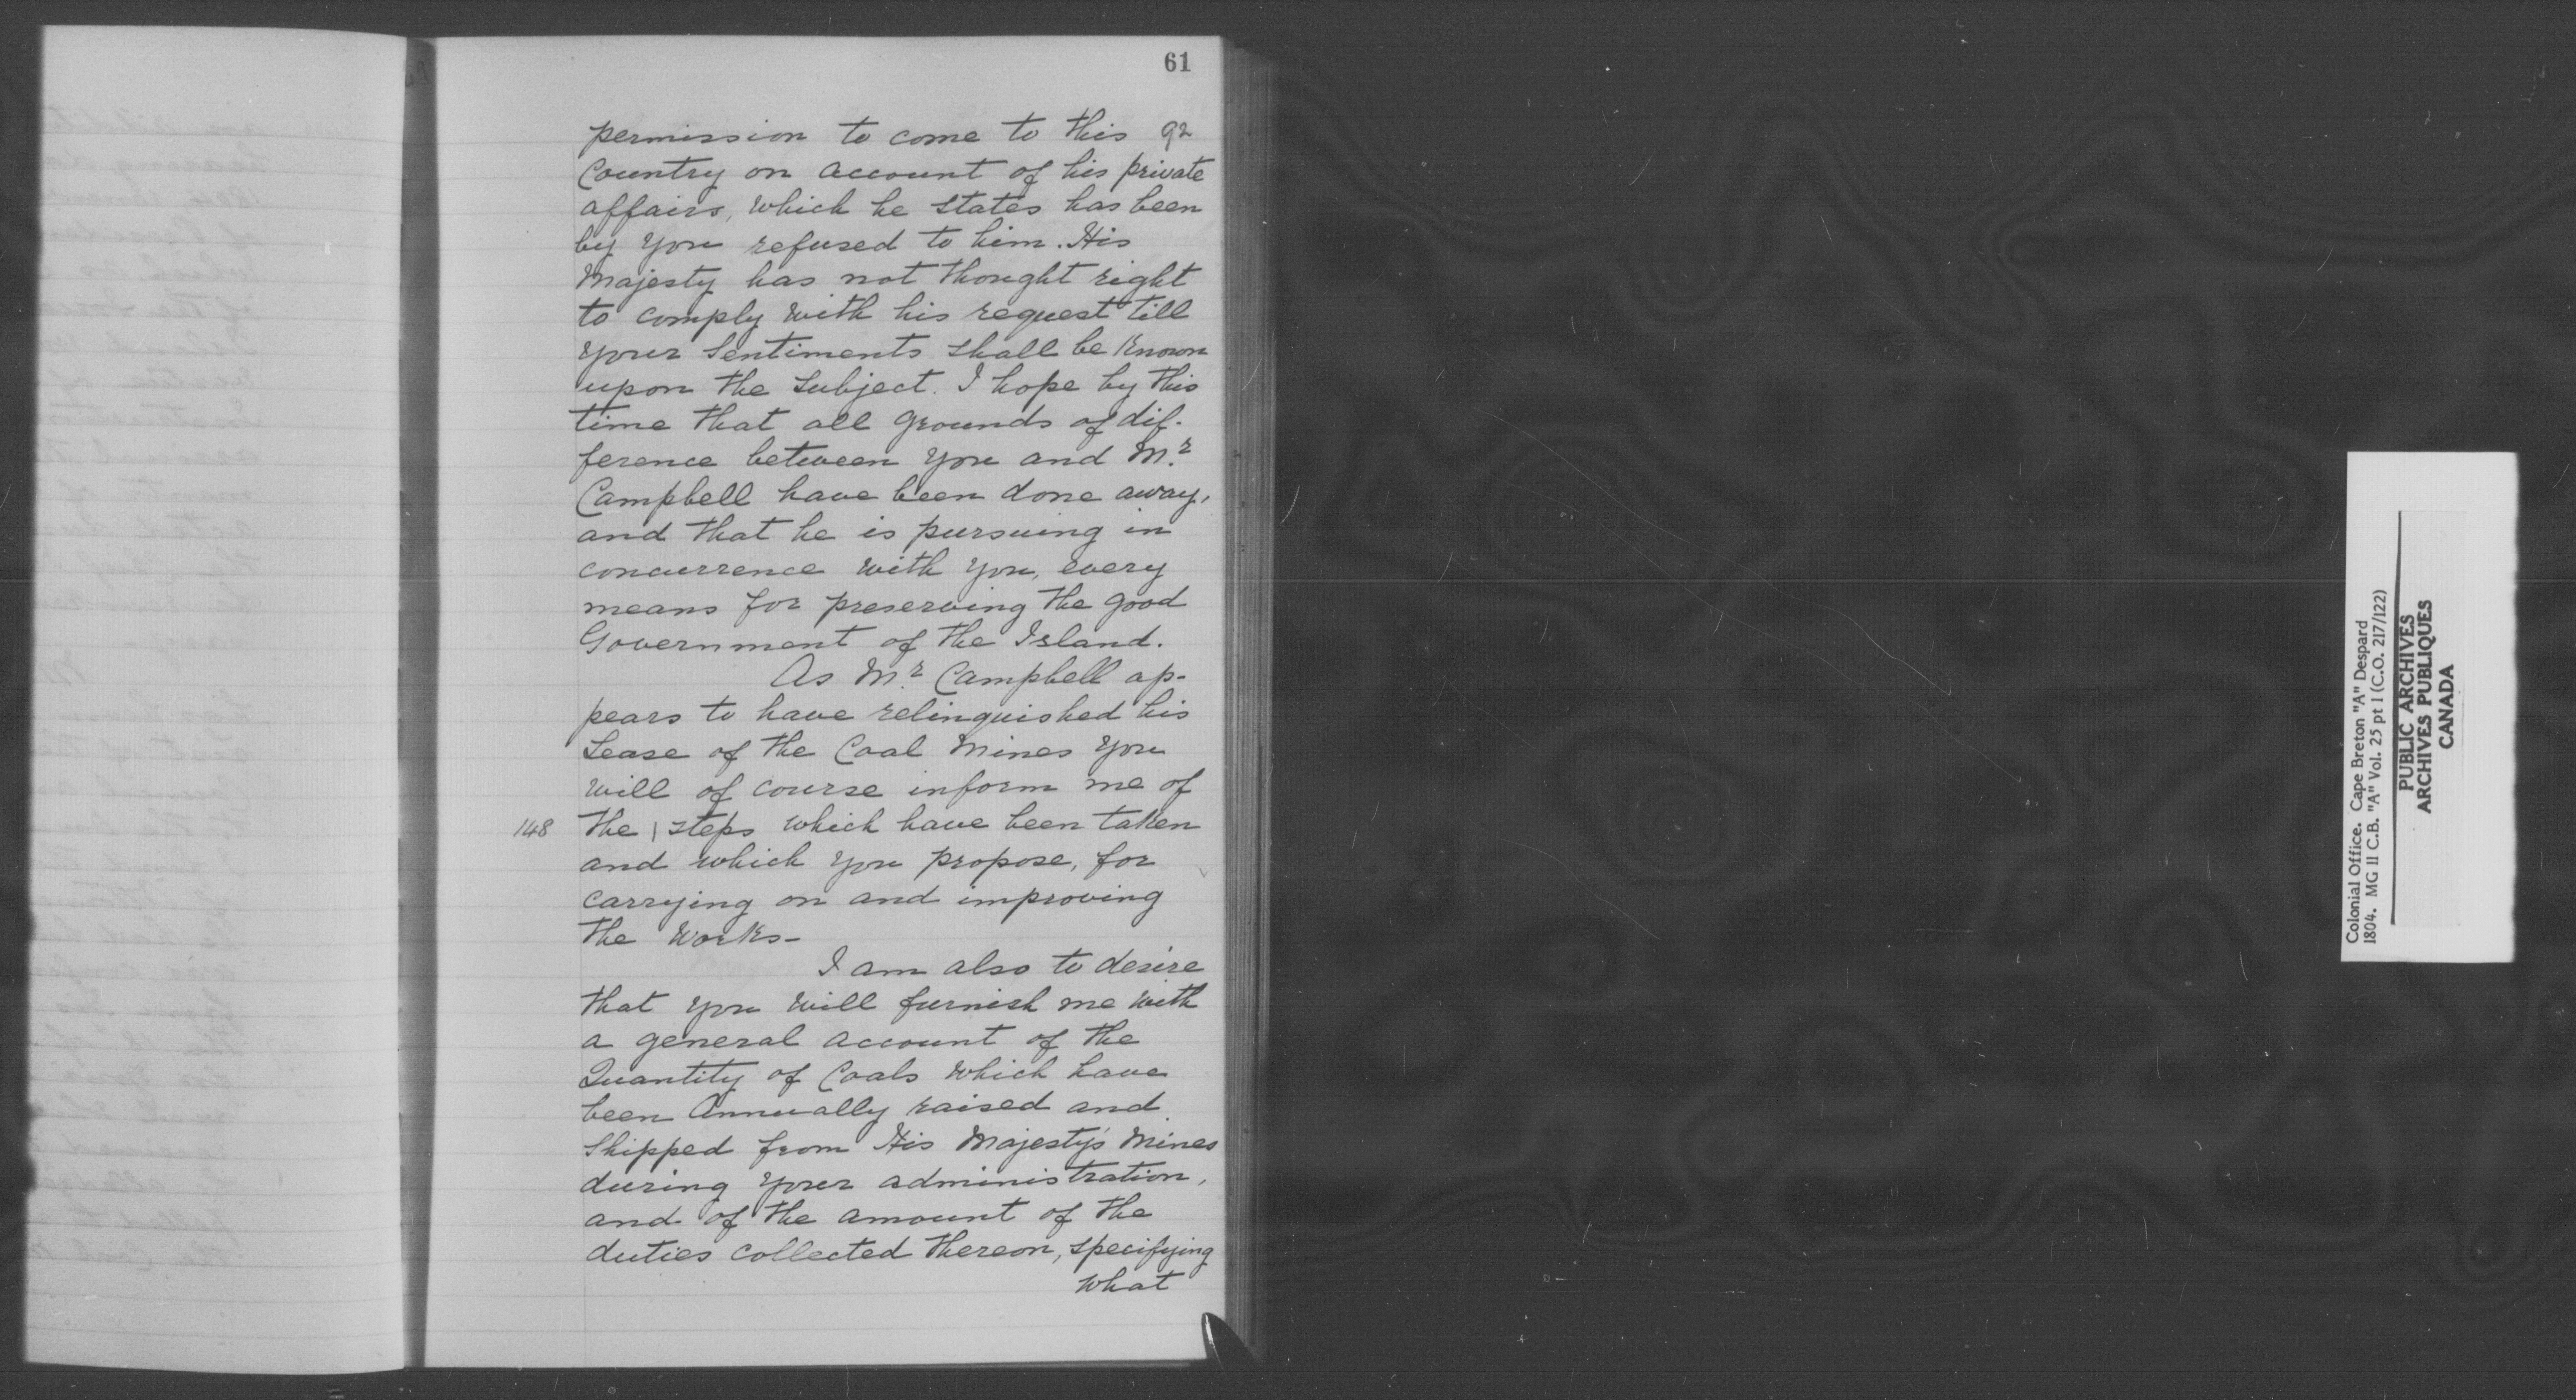 61
permission to come to this 92
Country on account of his private
affairs, which he states has been
by you refused to him. His
Majesty has not thought right
to comply with his request till
your Sentiments shall be known
upon the Subject. I hope by this
time that all grounds of dif-
ference between you and Mr.
Campbell have been done away,
and that he is pursuing in
concurrence with you, every
means for preserving the good
Government of the Island.
As Mr. Campbell ap-
pears to have relinquished his
Lease of the Coal Mines you
will of course inform me of
148 the | steps which have been taken
and which you propose, for
carrying on and improving
the Works-
I am also to desire
that you will furnish me with
a general account of the
Quantity of Coals which have
been Annually raised and
Shipped from His Majesty's Mines
during your administration,
and of the amount of the
duties collected thereon, specifying
what
Colonial Office. Cape Breton "A" Despard
1804. MG 11 C.B. "A" Vol. 25 pt 1 (C.O. 217/122)
PUBLIC ARCHIVES
ARCHIVES PUBLIQUES
CANADA